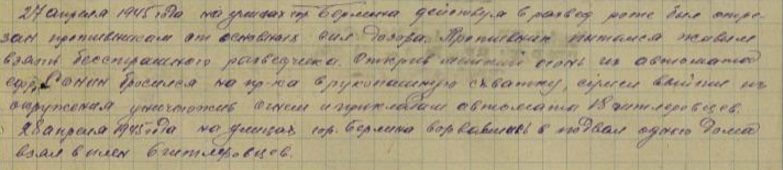 27 апреля 1945 года на улицах гор. Берлина действуя в развед роте был отре-
зан противником от основных сил дозора. Противник пытался живым
взять бесстрашного разведчика. Открыв меткий огонь из автомата
ефр. Санин бросился на пр-ка в рукопашную схватку, сумел выйти из
окружения уничтожив огнем и прикладом автомата 18 гитлеровцев.
28 апреля 1945 года на улицах гор. Берлина ворвавшись в подвал одного дома
взял в плен 6 гитлеровцев.